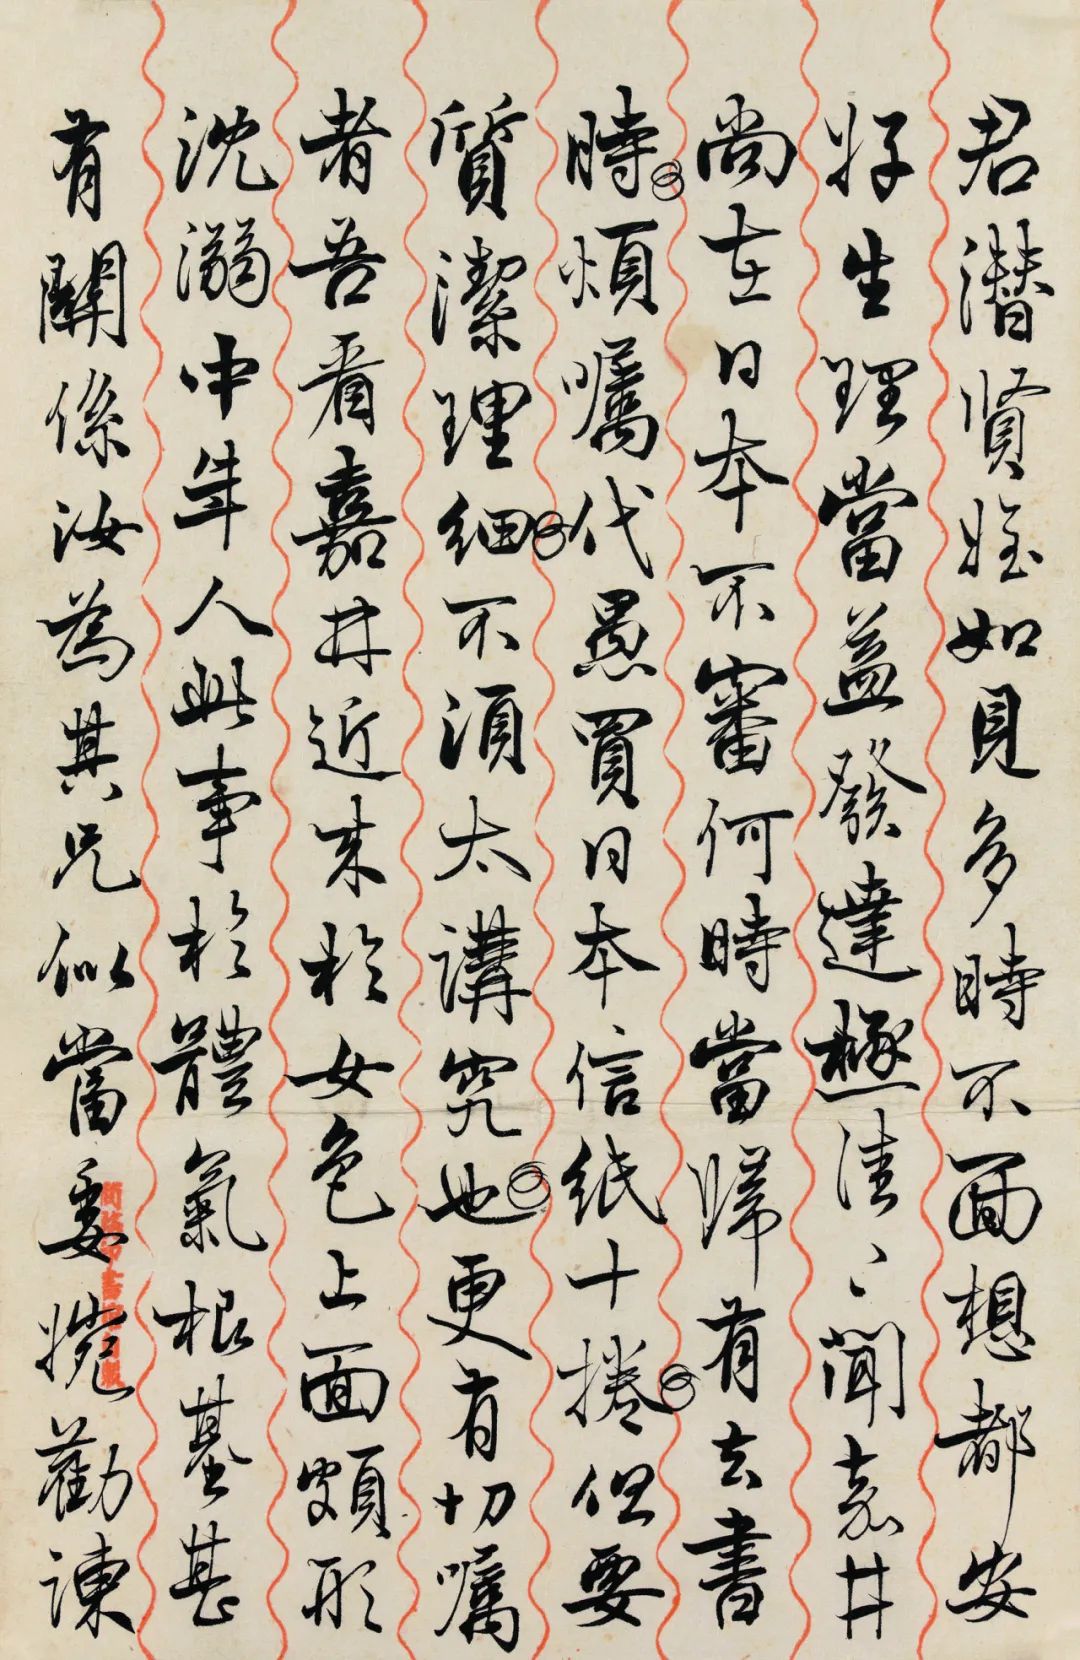 君潜贤姪如見多時不面想都安
好生理當益發達極佳々聞嘉井
尚在日本不審何時當歸有去書
時煩囑代愚買日本信紙十捲但要
質潔理細不須太講究也更有切囑
者吾看嘉井近来於女色上面頗形
沈溺中年人此事於體氣根基甚
有關係汝為其兄似當委婉勸諫